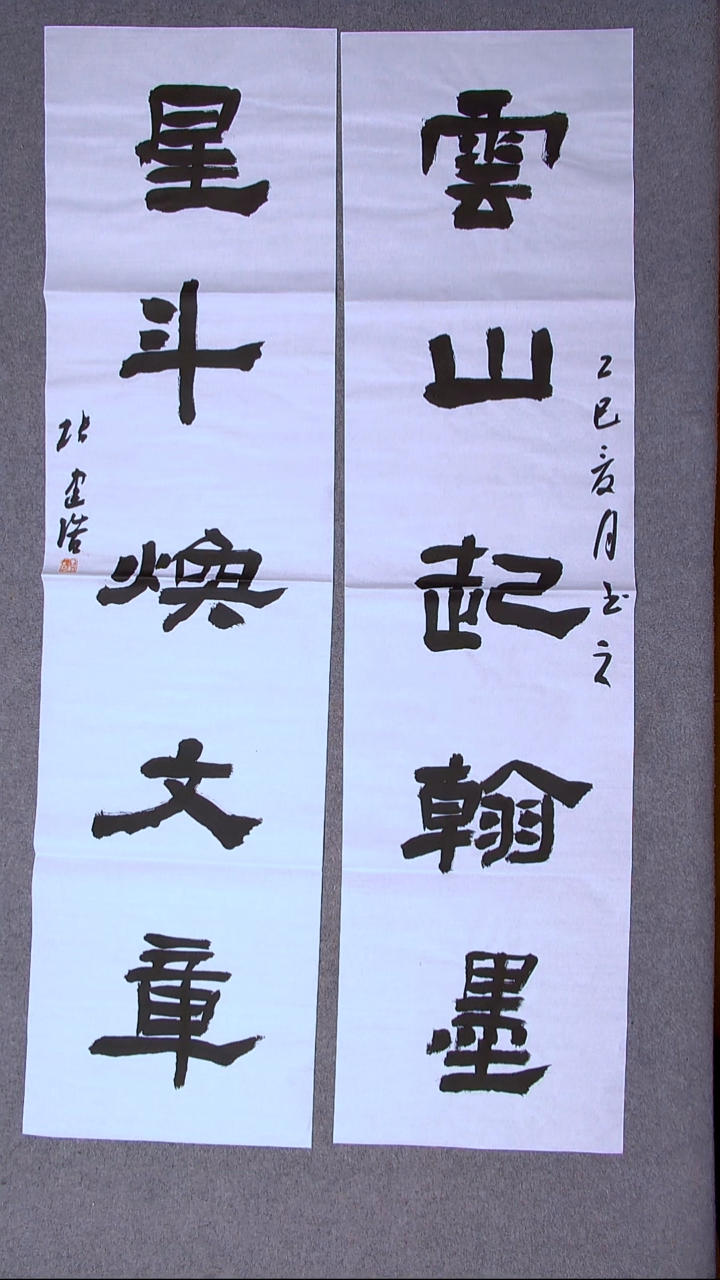 乙巳夏月书之
雲山起翰墨
星斗煥文章
张建浩